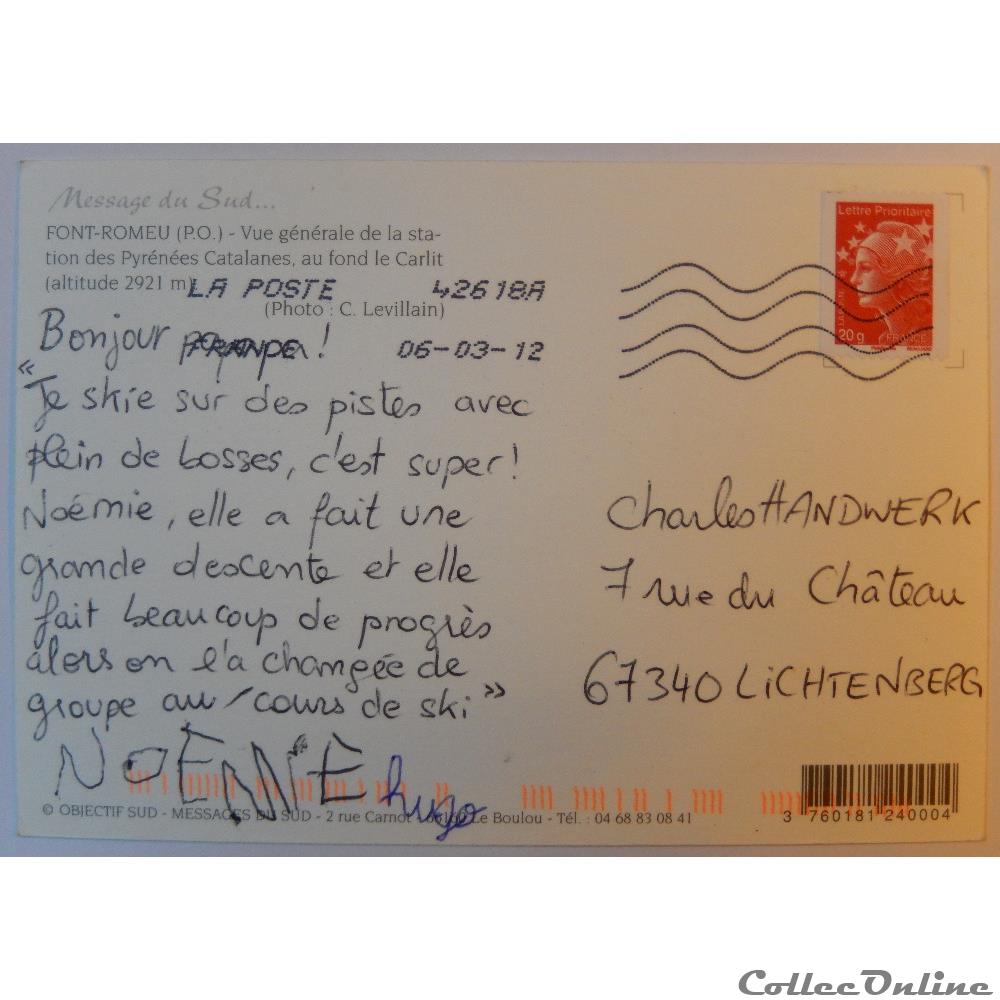 Message du Sud...
FONT-ROMEU (P.O.) - Vue générale de la sta-
tion des Pyrénées Catalanes, au fond le Carlit
(altitude 2921 m)
(Photo : C. Levillain)
LA POSTE 42618A
FRANCE 06-03-12
Lettre Prioritaire
20 g
FRANCE
Bonjour papa !
"Je skie sur des pistes avec
plein de bosses, c'est super !
Noémie, elle a fait une
grande descente et elle
fait beaucoup de progrès
alors on l'a changée de
groupe au cours de ski"
NOEMIE hugo
Charles HANDWERK
7 rue du Château
67340 LiCHTENBERG
© OBJECTIF SUD - MESSAGES DU SUD - 2 rue Carnot Le Boulou - Tél. : 04 68 83 08 41
3 760181 240004
CollecOnline